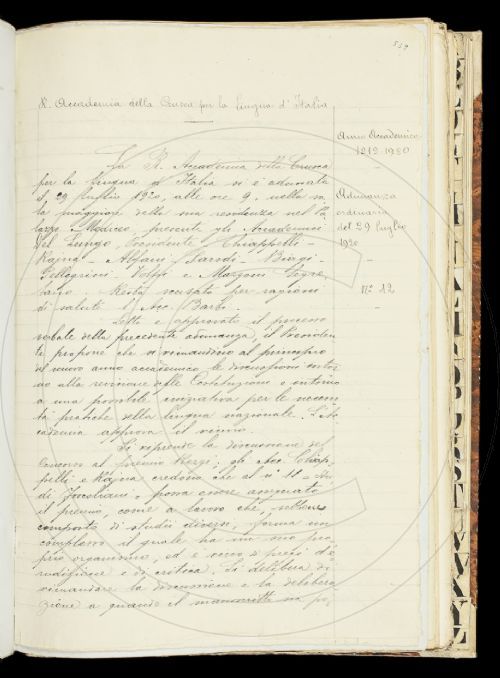 549
R. Accademia della Crusca per la Lingua d'Italia
Anno Accademico
1919-1920
Adunanza
ordinaria
del 29 luglio
1920
N.° 12
La R. Accademia della Crusca
per la Lingua d'Italia si è adunata
il 29 luglio 1920, alle ore 9, nella sa,
la maggiore della sua residenza nel Pa,
lazzo Mediceo, presenti gli Accademici
Del Lungo, Presidente Chiappelli -
Rajna - Alfani - Parodi - Biagi -
Pellegrini - Volpi e Mazzoni Segre,
tario. Resta scusato per ragioni
di salute l'Acc. Barbi.
Letto e approvato il processo
verbale della precedente adunanza, il Presiden
te propone che si rimandino al principio
del nuovo anno accademico le discussioni intor,
no alla revisione delle Costituzioni e intorno
a una possibile iniziativa per le necessi,
tà pratiche della lingua nazionale. L'Ac
cademia approva il rinvio.
Si riprende la discussione sul
Concorso al premio Rezzi; gli Acc. Chiap,
pelli e Rajna credono che al n° 11
di possa essere assegnato
il premio, come a lavoro che, sebbene
composto di studii diversi, forma un
complesso il quale ha un suo pro,
prio organismo, ed è ricco di pregi d'e,
rudizione e di critica. Si delibera di
rimandare la discussione e la delibera,
zione a quando il manoscritto sia